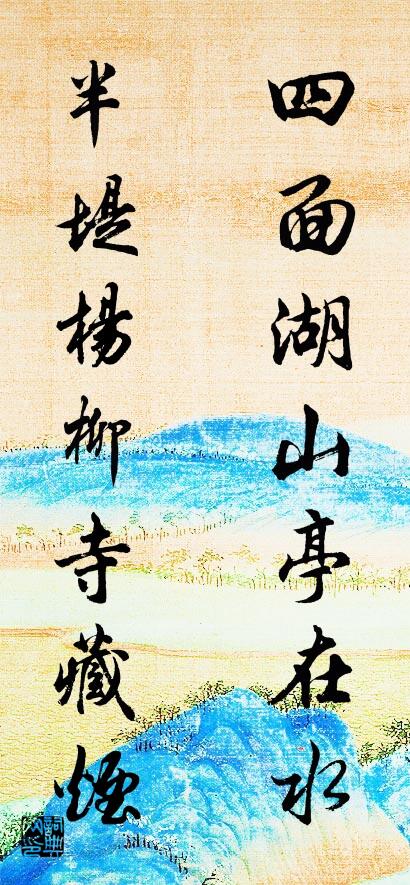 四面湖山亭在水
半堤楊柳寺藏煙